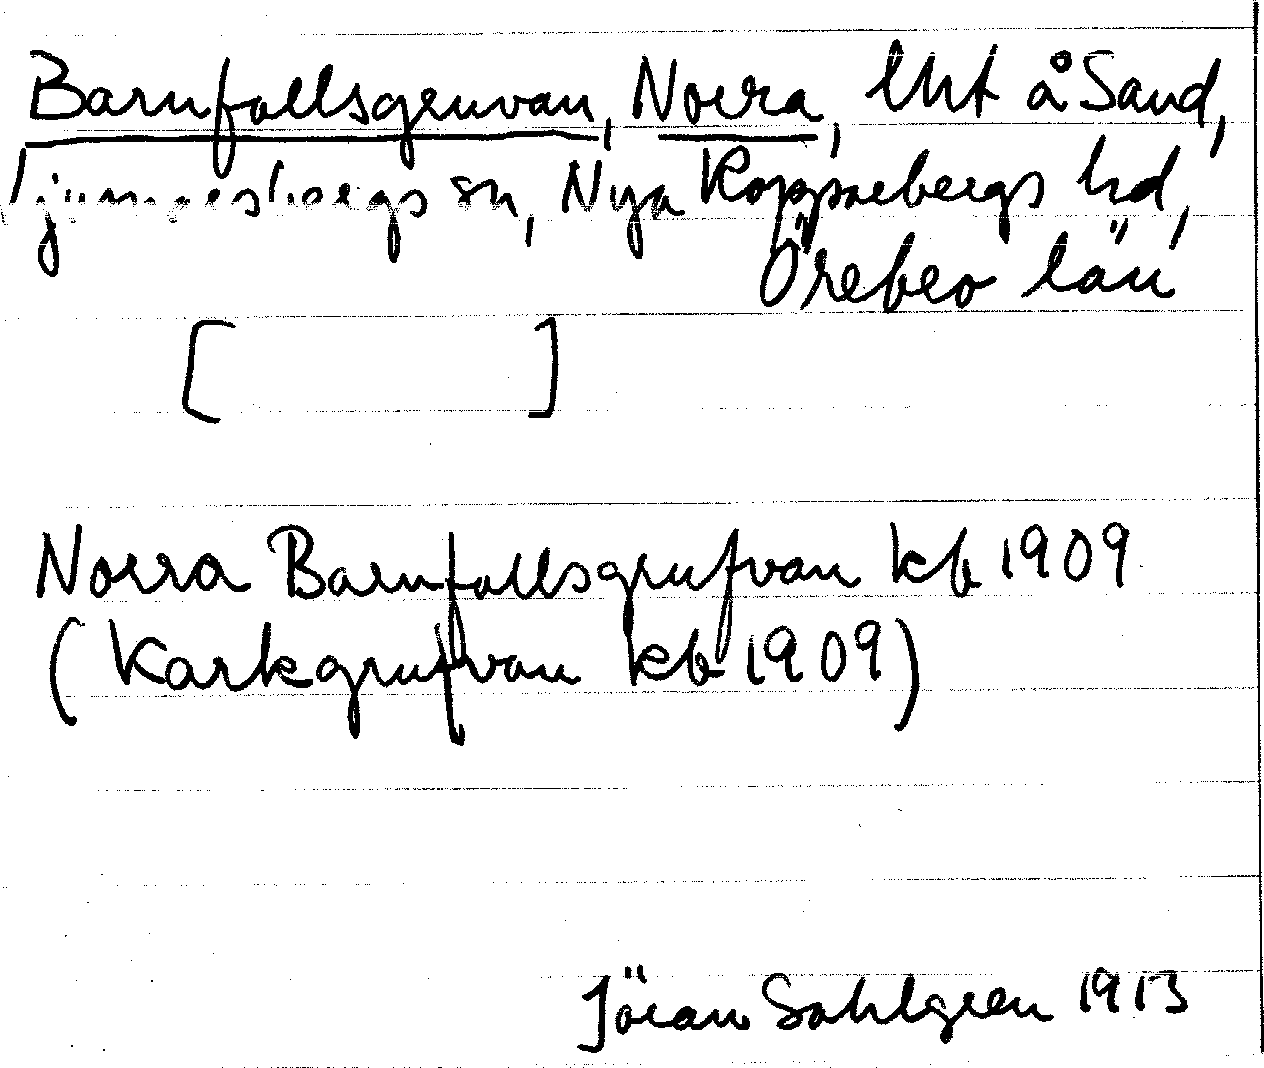 Barnfallsgruvan, Norra, lht å Sand,
Ljusnarsbergs sn, Nya Kopparbergs hd,
Örebro län
[ ]
Norra Barnfallsgrufvan kb 1909
(Karkgrufvan kb 1909)
Jöran Sahlgren 1913